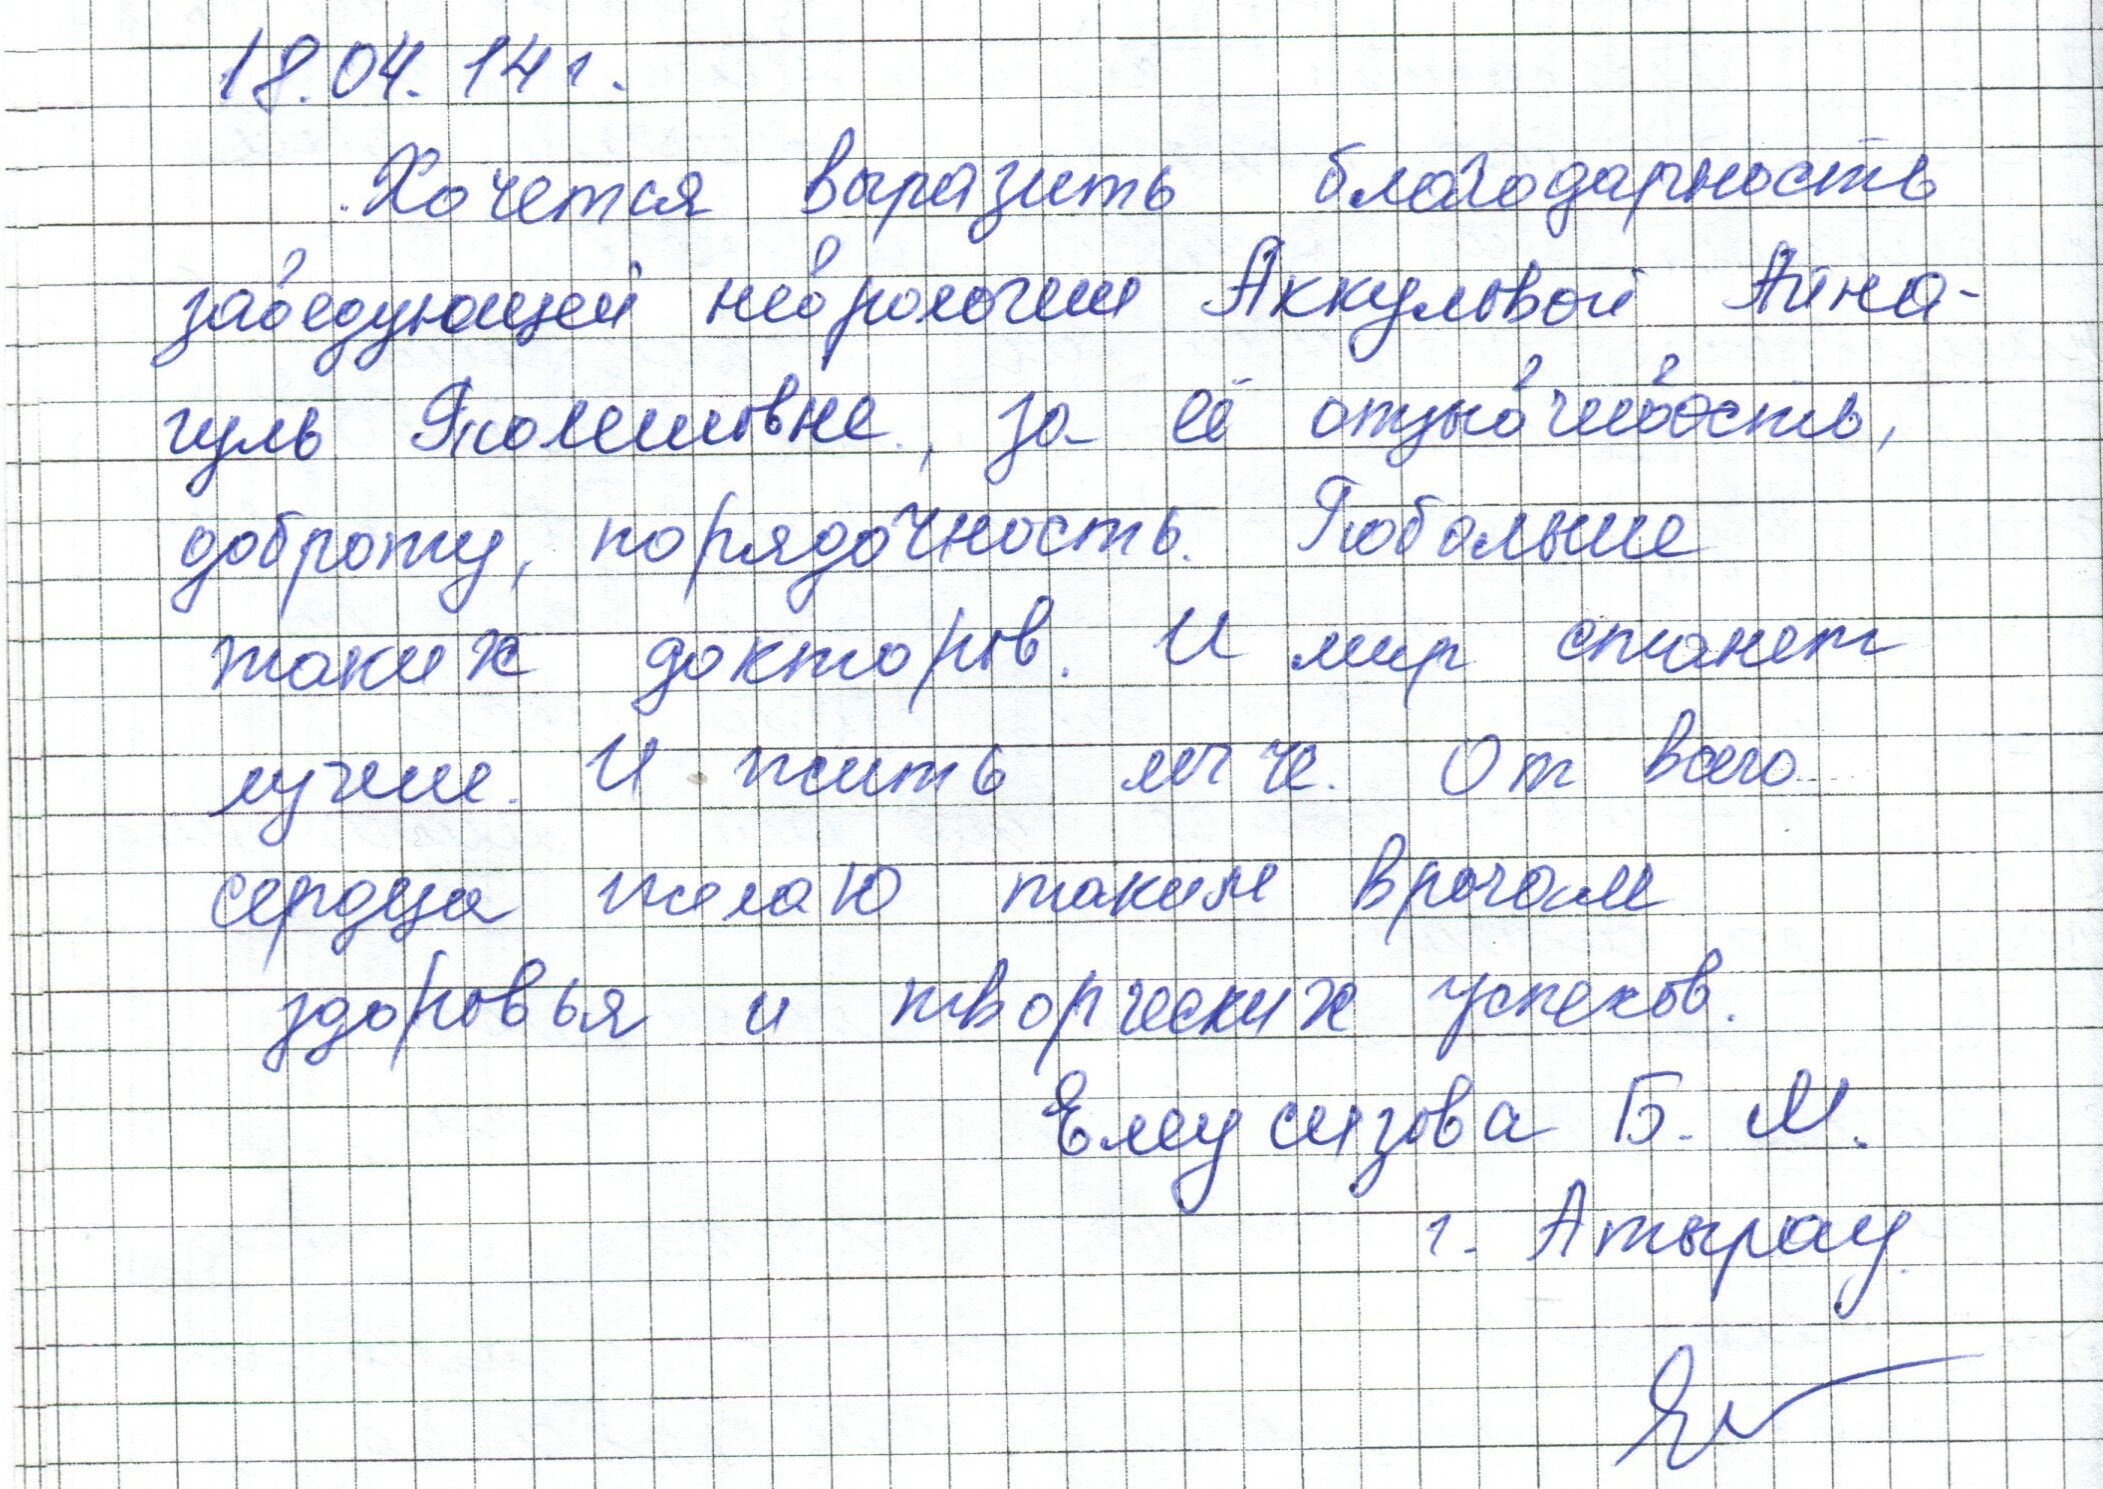 18.04.14г.
Хочется выразить благодарность
заведующей неврологии Аккуловой Айна-
гуль Толешовне, за её отзывчивость,
доброту, порядочность. Побольше
таких докторов. И мир станет
лучше. И жить легче. От всего
сердца желаю таким врачам
здоровья и творческих успехов.
Елеусизова Б. М.
г. Атырау